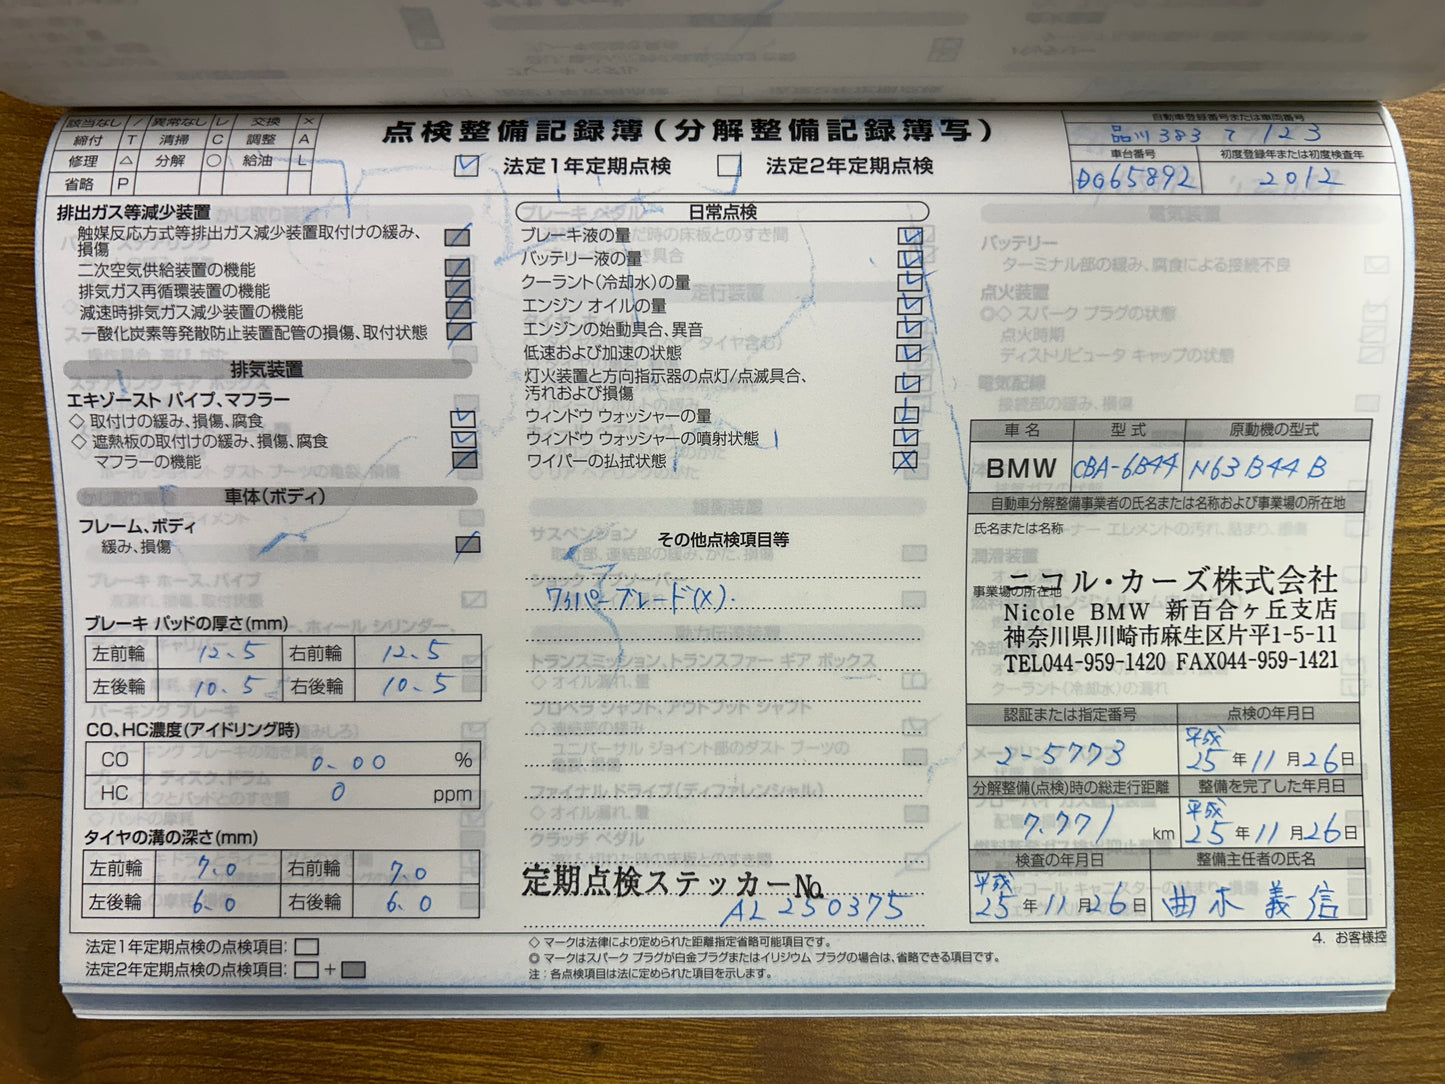 該当なし / 異常なし レ 交換 ×
締付 T 清掃 C 調整 A
修理 △ 分解 ○ 給油 L
省略 P
点検整備記録簿(分解整備記録簿写)
法定1年定期点検 法定2年定期点検
自動車登録番号または車両番号
品川 383 て 123
車台番号 初度登録年または初度検査年
DG65892 2012
排出ガス等減少装置
触媒反応方式等排出ガス減少装置取付けの緩み、
損傷
二次空気供給装置の機能
排気ガス再循環装置の機能
減速時排気ガス減少装置の機能
一酸化炭素等発散防止装置配管の損傷、取付状態
排気装置
エキゾースト パイプ、マフラー
◇ 取付けの緩み、損傷、腐食
◇ 遮熱板の取付けの緩み、損傷、腐食
マフラーの機能
車体(ボディ)
フレーム、ボディ
緩み、損傷
ブレーキ パッドの厚さ(mm)
左前輪 12.5 右前輪 12.5
左後輪 10.5 右後輪 10.5
CO、HC濃度(アイドリング時)
CO 0.00 %
HC 0 ppm
タイヤの溝の深さ(mm)
左前輪 7.0 右前輪 7.0
左後輪 6.0 右後輪 6.0
法定1年定期点検の点検項目:
法定2年定期点検の点検項目: +
日常点検
ブレーキ液の量
バッテリー液の量
クーラント(冷却水)の量
エンジン オイルの量
エンジンの始動具合、異音
低速および加速の状態
灯火装置と方向指示器の点灯/点滅具合、
汚れおよび損傷
ウィンドウ ウォッシャーの量 L
ウィンドウ ウォッシャーの噴射状態
ワイパーの払拭状態 ×
その他点検項目等
ワイパーブレード(X).
定期点検ステッカーNo.
AL 250375
◇ マークは法律により定められた距離指定省略可能項目です。
◎ マークはスパーク プラグが白金プラグまたはイリジウム プラグの場合は、省略できる項目です。
注:各点検項目は法に定められた項目を示します。
車 名 型 式 原動機の型式
BMW CBA-6B44 N63B44B
自動車分解整備事業者の氏名または名称および事業場の所在地
氏名または名称
事業場の所在地
ニコル・カーズ株式会社
Nicole BMW 新百合ヶ丘支店
神奈川県川崎市麻生区片平1-5-11
TEL044-959-1420 FAX044-959-1421
認証または指定番号 点検の年月日
2-5773 平成 25 年 11 月 26 日
分解整備(点検)時の総走行距離 整備を完了した年月日
7.771 km 平成 25 年 11 月 26 日
検査の年月日 整備主任者の氏名
平成 25 年 11 月 26 日 曲木 義信
4. お客様控